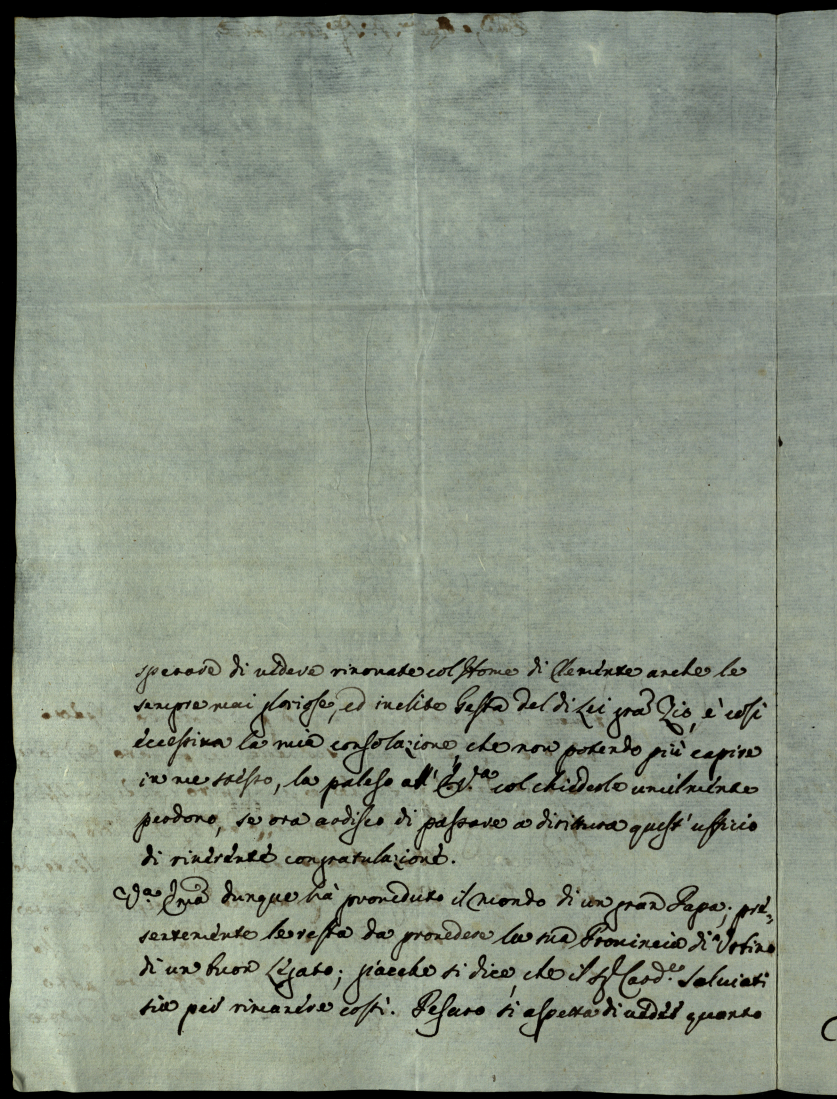 sperare di vedere rinovate col Nome di Clemente anche le
sempre mai gloriose, ed inclite Gesta del di Lei gran Zio, è così
eccessiva la mia consolazione, che non potendo più capire
in me stesso, la paleso all' col chiederle umilmente
perdono, se ora ardisco di passare a diritura quest' ufficio
di riverente congratulazione.
V.ª Em.ª dunque hà proveduto il mondo di un gran Papa; pre=
sentemente le resta da provedere la sua Provincia di Urbino
di un buon Legato; giacche si dice, che il Sig.r Card.le Salviati
sia per rimanere costì. Pesaro si aspetta di veder quanto